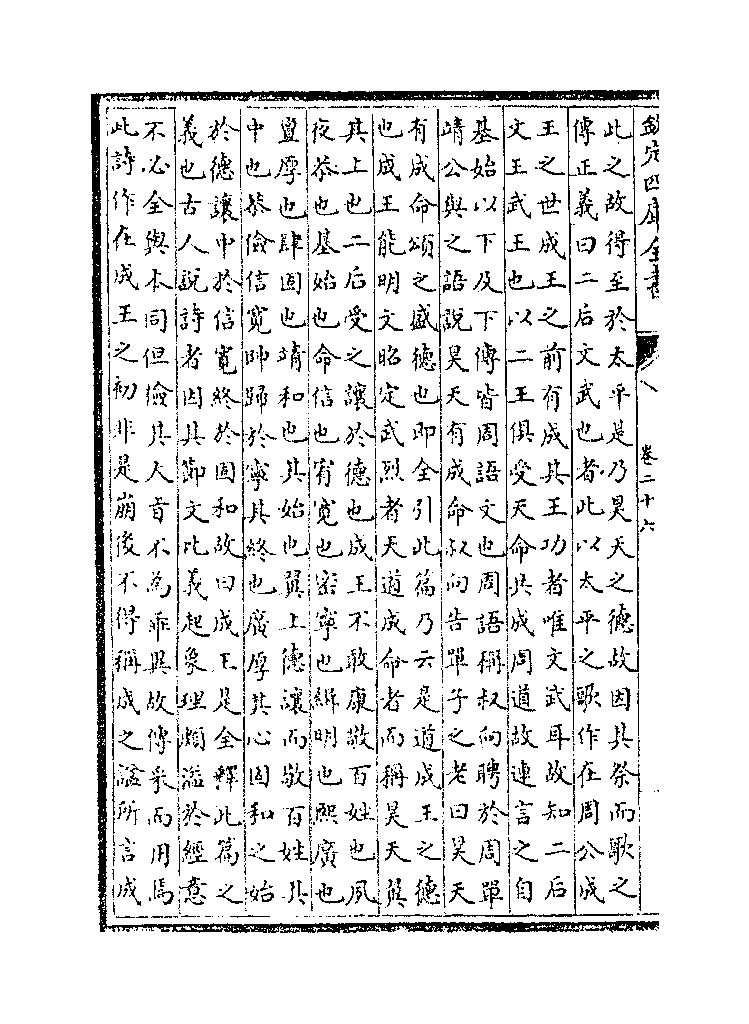 欽定四庫全書
八
卷二十六
此之故得至於太平是乃昊天之德故因其祭而歌之
傳正義曰二后文武也者此以太平之歌作在周公成
王之世成王之前有成其王功者唯文武耳故知二后
文王武王也以二王俱受天命共成周道故連言之自
基始以下及下傳皆周語文也周語稱叔向聘於周單
靖公與之語說昊天有成命叔向告單子之老曰昊天
有成命頌之盛德也即全引此篇乃云是道成王之德
也成王能明文昭定武烈者天道成命者而稱昊天翼
其上也二后受之讓於德也成王不敢康敬百姓也夙
夜恭也基始也命信也宥寬也密寧也緝明也熙廣也
亶厚也肆固也靖和也其始也翼上德讓而敬百姓其
中也恭儉信寬帥歸於寧其終也廣厚其心固和之始
於德讓中於信寬終於固和故曰成王是全釋此篇之
義也古人說詩者因其節文比義起象理頗溢於經意
不必全與本同但檢其大旨不為乖異故傳采而用焉
此詩作在成王之初非是崩後不得稱成之諡所言成